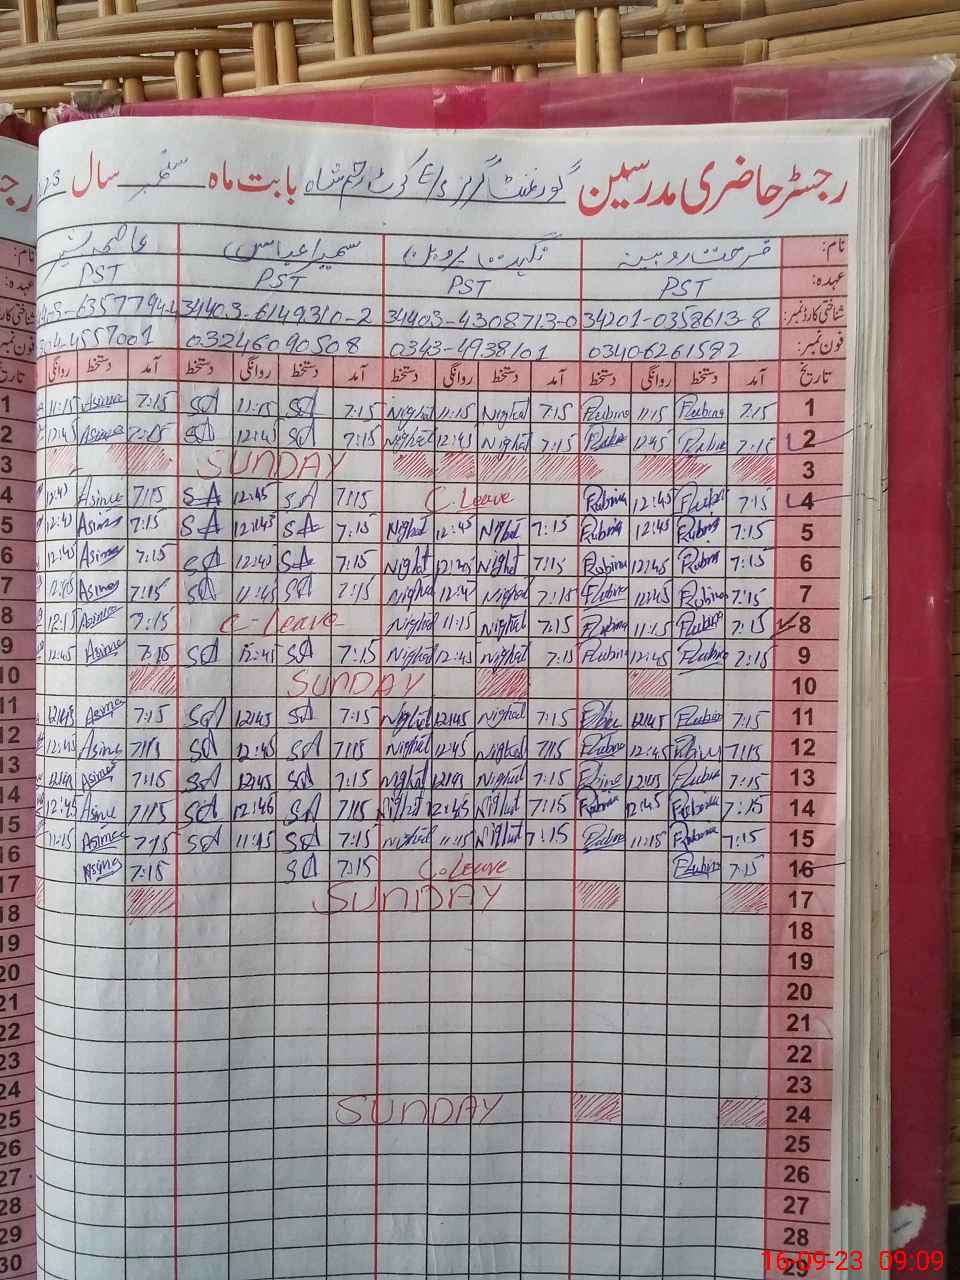 رجسٹر حاضری مدرسین گورنمنٹ گرلز E/S کوٹ رحم شاہ بابت ماہ ستمبر سال
نام: فرحت روبینہ نگہت پروین سمیرا عباس
عہدہ: PST PST PST PST
شناختی کارڈ نمبر: 34201-0358613-8 34403-4308713-0 34403-6149310-2
فون نمبر: 0340-6261592 0343-4938101 03246090508
تاریخ آمد دستخط روانگی دستخط آمد دستخط روانگی دستخط آمد دستخط روانگی دستخط آمد دستخط روانگی
1 7:15 Rubina 11:15 Rubina 7:15 Nighat 11:15 Nighat 7:15 SA 11:15 SA 7:15 Asima 11:15
2 7:15 Rubina 12:45 Rubina 7:15 Nighat 12:45 Nighat 7:15 SA 12:45 SA 7:15 Asima 12:45
3 SUNDAY
4 7:15 Rubina 12:45 Rubina C.Leave 7:15 SA 12:45 SA 7:15 Asima 12:45
5 7:15 Rubina 12:45 Rubina 7:15 Nighat 12:45 Nighat 7:15 SA 12:45 SA 7:15 Asima 12:45
6 7:15 Rubina 12:45 Rubina 7:15 Nighat 12:45 Nighat 7:15 SA 12:45 SA 7:15 Asima 12:45
7 7:15 Rubina 12:45 Rubina 7:15 Nighat 12:45 Nighat 7:15 SA 11:45 SA 7:15 Asima
8 7:15 Rubina 11:15 Rubina 7:15 Nighat 11:15 Nighat C-Leave 7:15 Asima 12:15
9 7:15 Rubina 12:45 Rubina 7:15 Nighat 12:45 Nighat 7:15 SA 12:45 SA 7:15 Asima 12:45
10 SUNDAY
11 7:15 Rubina 12:45 7:15 Nighat 12:45 Nighat 7:15 SA 12:45 SA 7:15 Asima 12:45
12 7:15 Rubina 12:45 Rubina 7:15 Nighat 12:45 Nighat 7:15 SA 12:45 SA 7:15 Asima 12:45
13 7:15 Rubina 12:45 7:15 Nighat 12:45 Nighat 7:15 SA 12:45 SA 7:15 Asima 12:45
14 7:15 Rubina 12:45 Rubina 7:15 Nighat 12:45 Nighat 7:15 SA 12:45 SA 7:15 Asima 12:45
15 7:15 Rubina 11:15 Rubina 7:15 Nighat 11:15 Nighat 7:15 SA 11:45 SA 7:15 Asima 11:15
16 7:15 Rubina C.Leave 7:15 SA 7:15 Asima
17 SUNDAY
18
19
20
21
22
23
24 SUNDAY
25
26
27
28
29
16-09-23 09:09